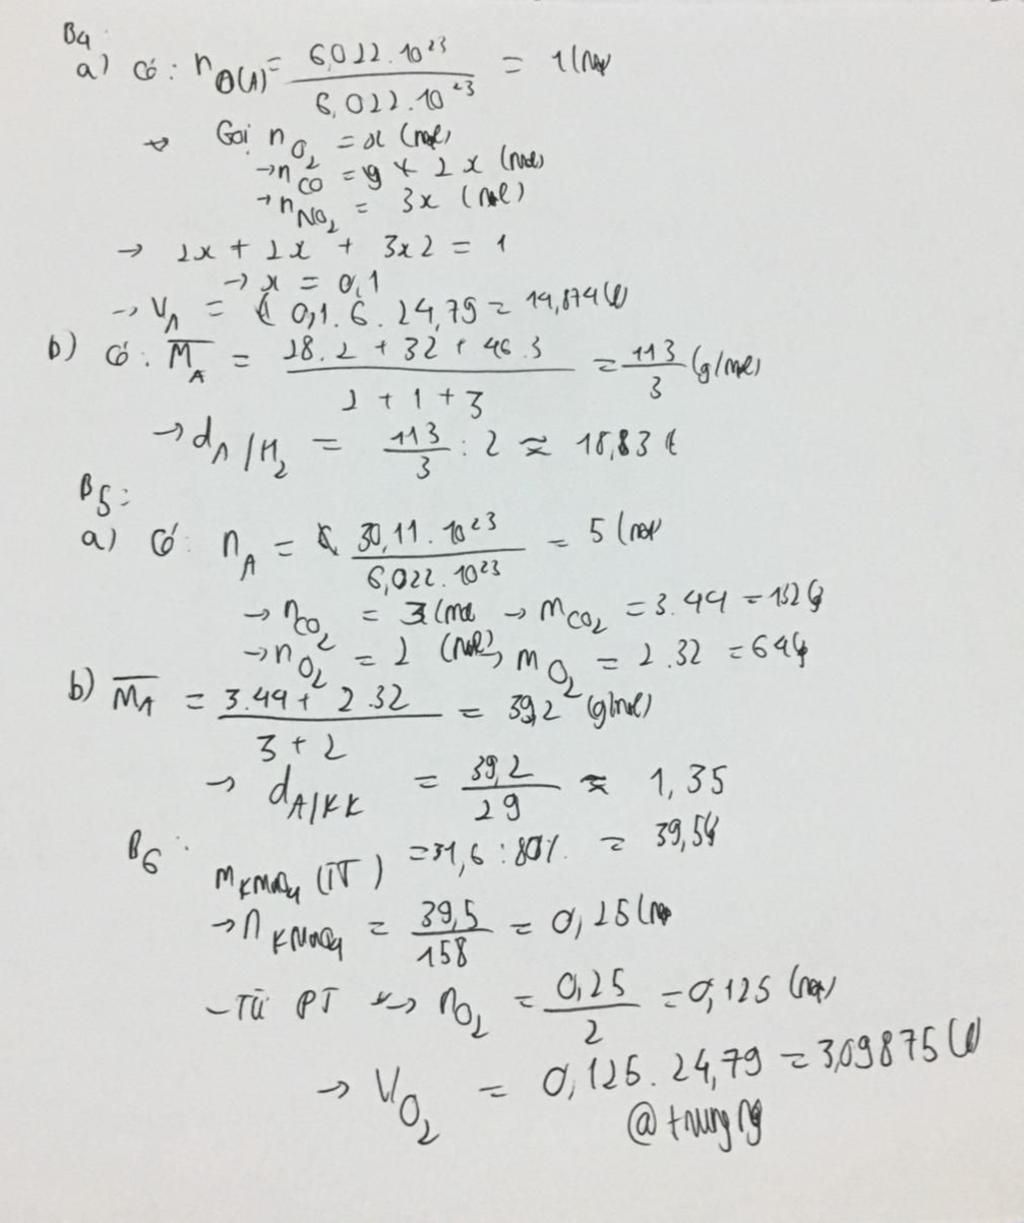 B4
a) Có: n O(A) = 6,022.10²³ / 6,022.10²³ = 1 (mol)
→ Gọi n O₂ = x (mol)
→ n CO = 2x (mol)
→ n NO₂ = 3x (mol)
→ 2x + 2x + 3x2 = 1
→ x = 0,1
→ V A = 0,1.6.24,79 = 14,874 (l)
b) Có: M̅ A = 28.2 + 32 + 46.3 / 2 + 1 + 3 = 113/3 (g/mol)
→ d A/H₂ = 113/3 : 2 ≈ 18,83
B5:
a) Có n A = 30,11.10²³ / 6,022.10²³ = 5 (mol)
→ n CO₂ = 3 (mol → m CO₂ = 3.44 = 132 g
→ n O₂ = 2 (mol), m O₂ = 2.32 = 64 g
b) M̅ A = 3.44 + 2.32 / 3 + 2 = 39,2 (g/mol)
→ d A/KK = 39,2 / 29 ≈ 1,35
B6:
m KMnO₄ (TT) = 31,6 : 80% = 39,5 g
→ n KMnO₄ = 39,5 / 158 = 0,25 (mol)
- Từ PT → n O₂ = 0,25 / 2 = 0,125 (mol)
→ V O₂ = 0,125.24,79 = 3,09875 (l)
@trungng